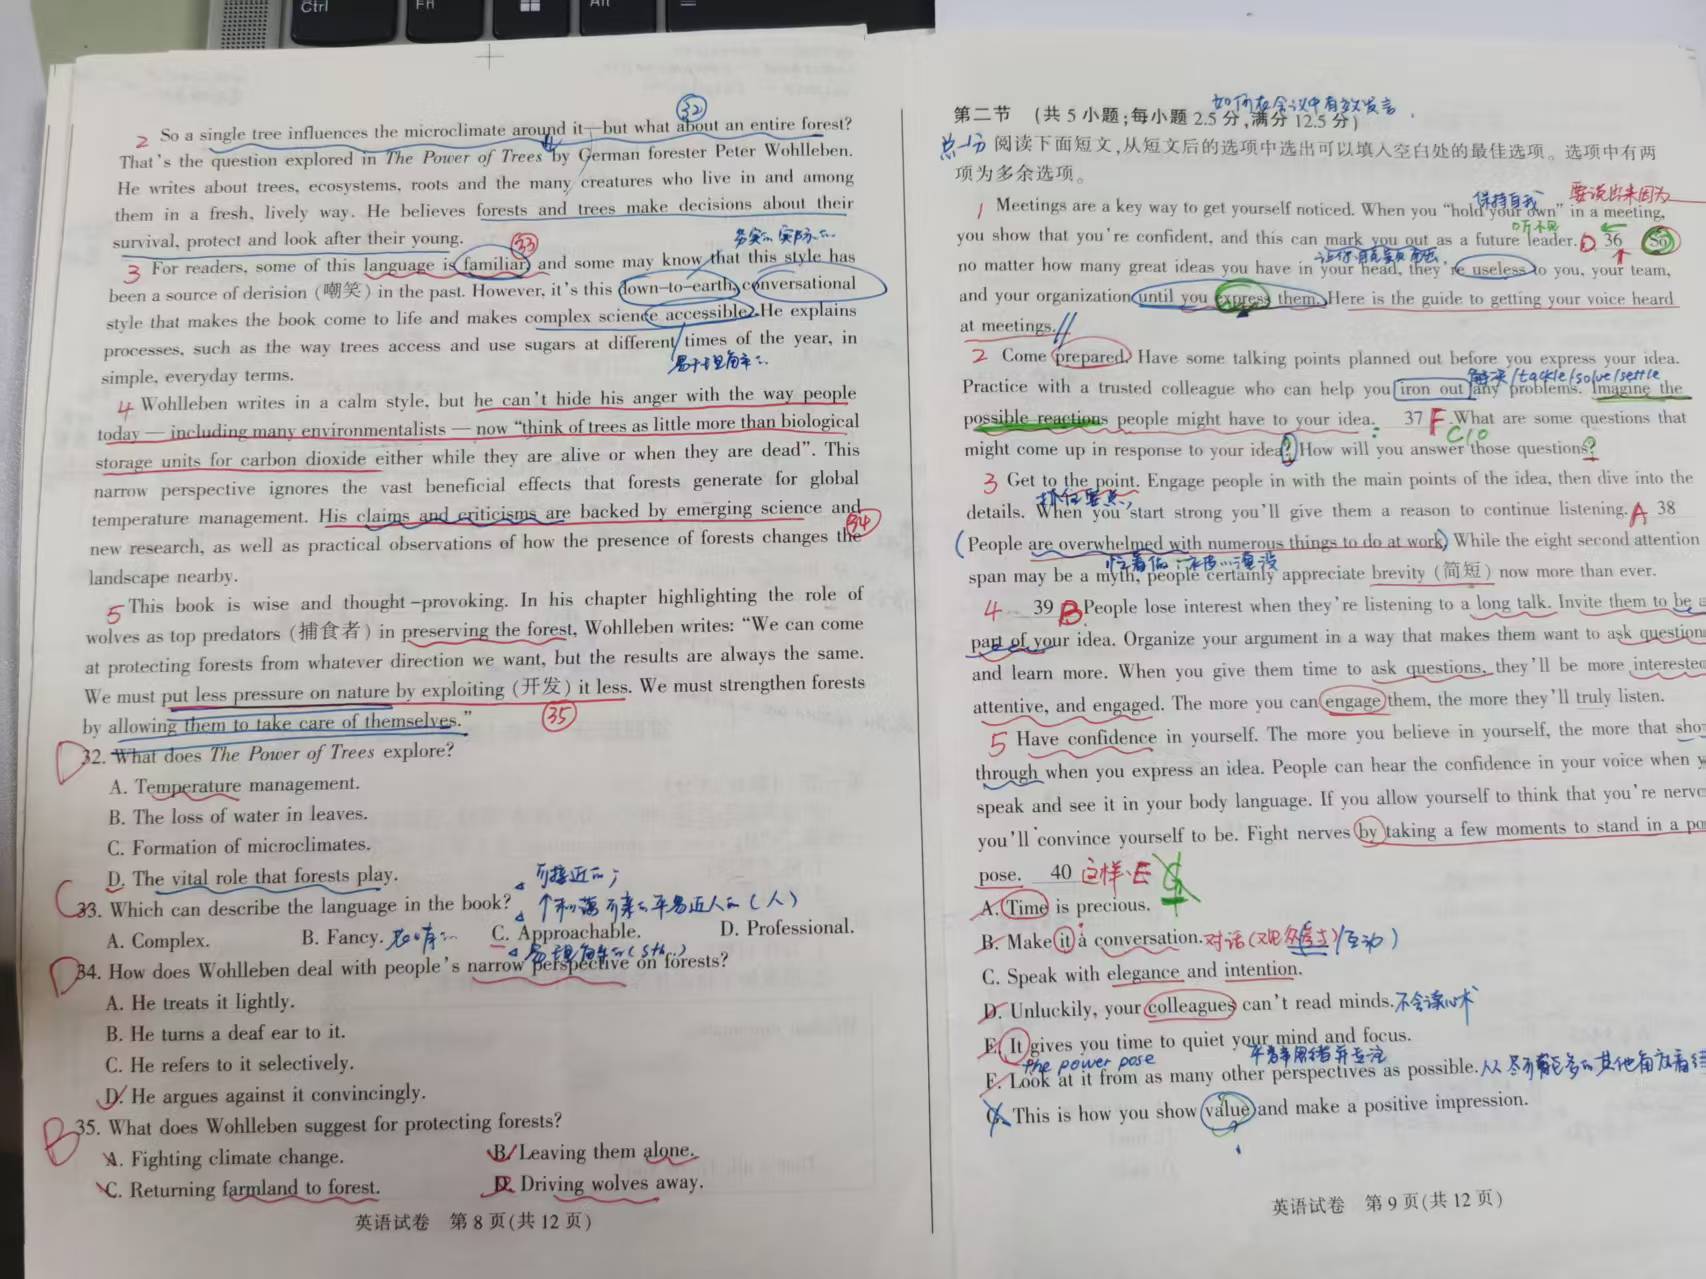 Ctrl
Fn
Alt
32
2 So a single tree influences the microclimate around it—but what about an entire forest?
That's the question explored in The Power of Trees by German forester Peter Wohlleben.
He writes about trees, ecosystems, roots and the many creatures who live in and among
them in a fresh, lively way. He believes forests and trees make decisions about their
survival, protect and look after their young.
33
3 For readers, some of this language is familiar and some may know that this style has
been a source of derision (嘲笑) in the past. However, it's this down-to-earth, conversational
style that makes the book come to life and makes complex science accessible. He explains
processes, such as the way trees access and use sugars at different times of the year, in
simple, everyday terms.
4 Wohlleben writes in a calm style, but he can't hide his anger with the way people
today — including many environmentalists — now “think of trees as little more than biological
storage units for carbon dioxide either while they are alive or when they are dead”. This
narrow perspective ignores the vast beneficial effects that forests generate for global
temperature management. His claims and criticisms are backed by emerging science and
34
new research, as well as practical observations of how the presence of forests changes the
landscape nearby.
5 This book is wise and thought-provoking. In his chapter highlighting the role of
wolves as top predators (捕食者) in preserving the forest, Wohlleben writes: “We can come
at protecting forests from whatever direction we want, but the results are always the same.
We must put less pressure on nature by exploiting (开发) it less. We must strengthen forests
35
by allowing them to take care of themselves.”
D 32. What does The Power of Trees explore?
A. Temperature management.
B. The loss of water in leaves.
C. Formation of microclimates.
D. The vital role that forests play.
可接近的;
C 33. Which can describe the language in the book?
A. Complex. B. Fancy. C. Approachable. D. Professional.
D 34. How does Wohlleben deal with people's narrow perspective on forests?
A. He treats it lightly.
B. He turns a deaf ear to it.
C. He refers to it selectively.
D. He argues against it convincingly.
B 35. What does Wohlleben suggest for protecting forests?
A. Fighting climate change. B. Leaving them alone.
C. Returning farmland to forest. D. Driving wolves away.
英语试卷 第8页(共12页)
如何在会议中有效发言
第二节 (共5小题;每小题2.5分,满分12.5分)
阅读下面短文,从短文后的选项中选出可以填入空白处的最佳选项。选项中有两
项为多余选项。
保持自我 要说出来因为
1 Meetings are a key way to get yourself noticed. When you “hold your own” in a meeting,
you show that you're confident, and this can mark you out as a future leader. D 36
no matter how many great ideas you have in your head, they're useless to you, your team,
and your organization until you express them. Here is the guide to getting your voice heard
at meetings.
2 Come prepared. Have some talking points planned out before you express your idea.
解决/tackle/solve/settle
Practice with a trusted colleague who can help you iron out any problems. Imagine the
possible reactions people might have to your idea. 37 F What are some questions that
might come up in response to your idea? How will you answer those questions?
3 Get to the point. Engage people in with the main points of the idea, then dive into the
抓住要点
details. When you start strong you'll give them a reason to continue listening. A 38
People are overwhelmed with numerous things to do at work. While the eight second attention
span may be a myth, people certainly appreciate brevity (简短) now more than ever.
4 39 B People lose interest when they're listening to a long talk. Invite them to be a
part of your idea. Organize your argument in a way that makes them want to ask question
and learn more. When you give them time to ask questions, they'll be more interested
attentive, and engaged. The more you can engage them, the more they'll truly listen.
5 Have confidence in yourself. The more you believe in yourself, the more that sho
through when you express an idea. People can hear the confidence in your voice when y
speak and see it in your body language. If you allow yourself to think that you're nervo
you'll convince yourself to be. Fight nerves by taking a few moments to stand in a po
pose. 40 这样 E
A. Time is precious.
B. Make it a conversation.
C. Speak with elegance and intention.
D. Unluckily, your colleagues can't read minds. 不会读心术
E. It gives you time to quiet your mind and focus.
the power pose
F. Look at it from as many other perspectives as possible.
G. This is how you show value and make a positive impression.
英语试卷 第9页(共12页)